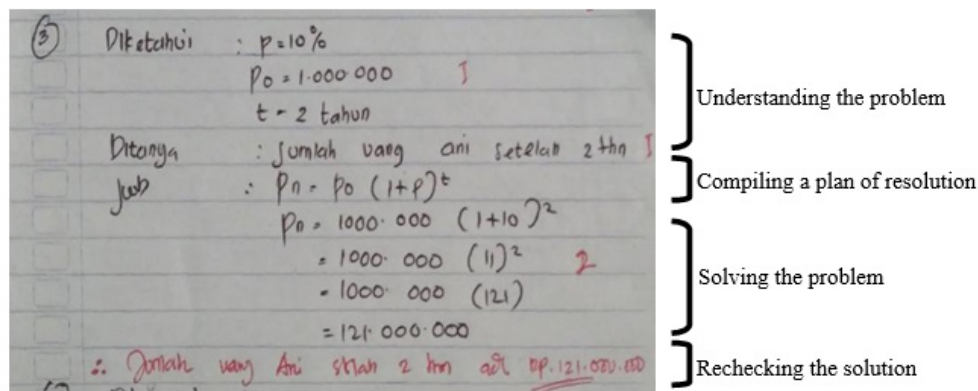 ③ Diketahui : p = 10%
Po = 1.000.000 I
t = 2 tahun
Ditanya : Jumlah uang ani setelah 2 thn I
Jwb : Pn = Po (1+P)ᵗ
Pn = 1000.000 (1+10)²
= 1000.000 (11)² 2
= 1000.000 (121)
= 121.000.000
∴ Jumlah uang Ani 2 thn
Understanding the problem
Compiling a plan of resolution
Solving the problem
Rechecking the solution